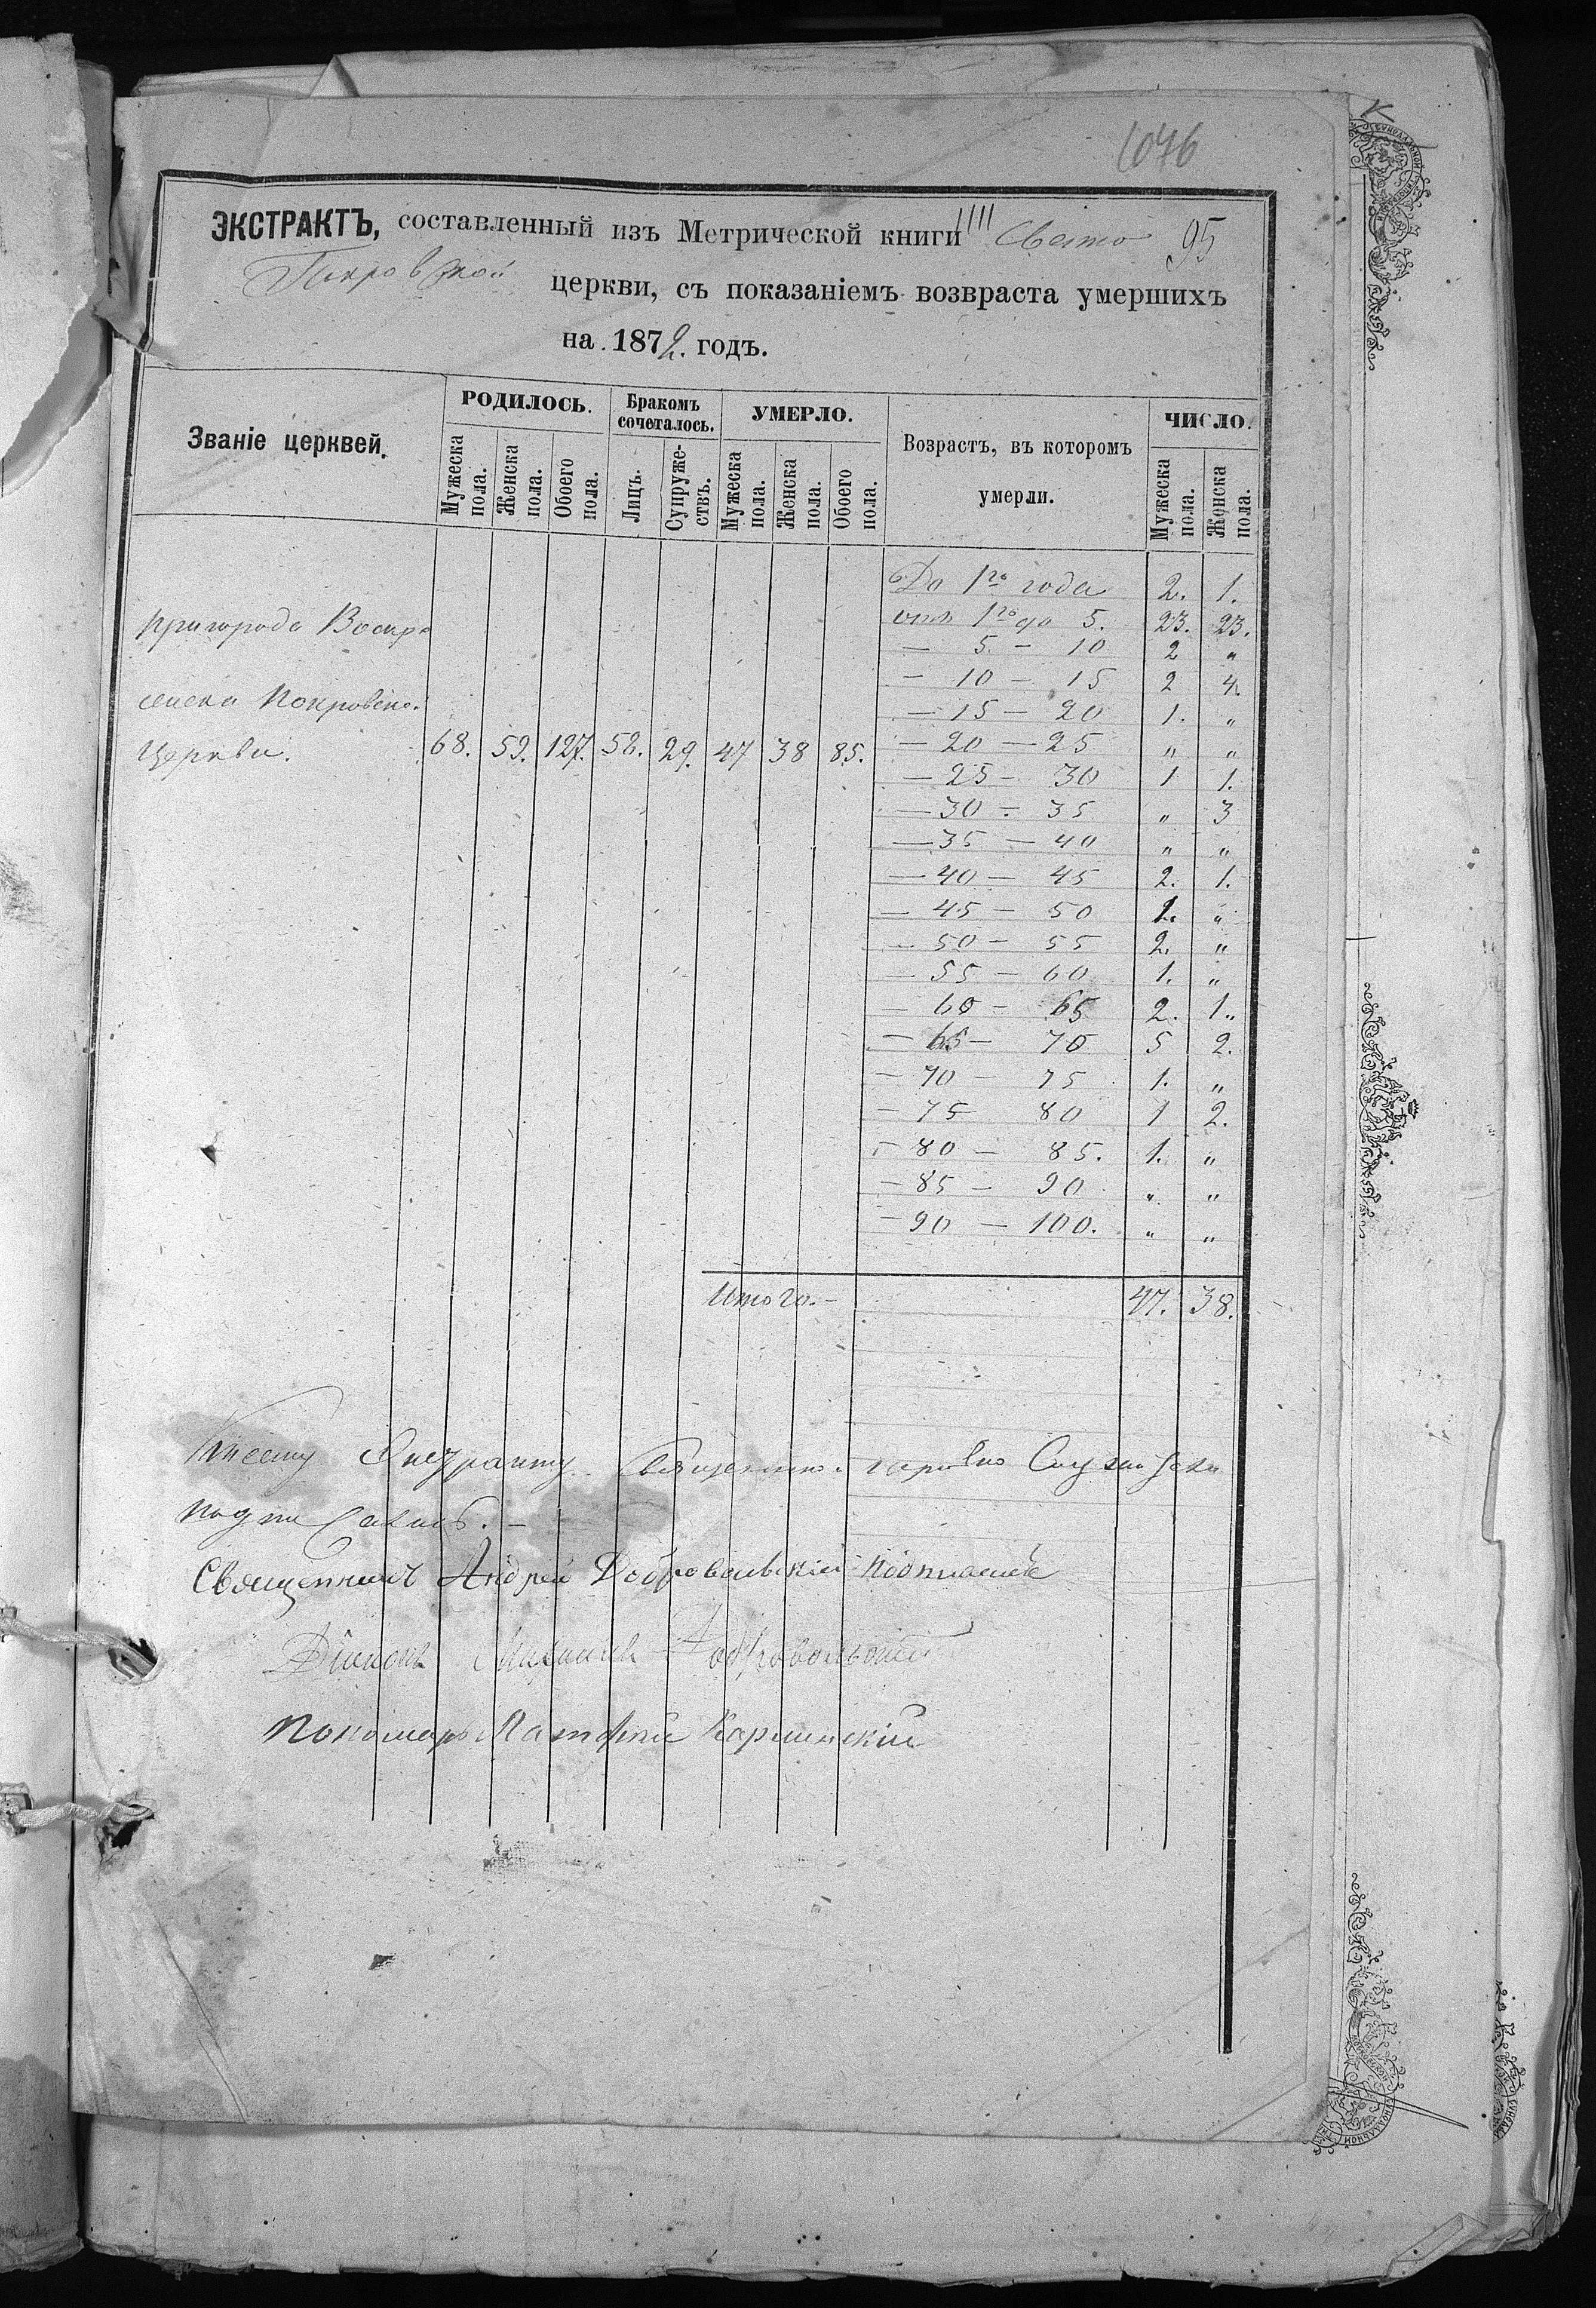 1076
ЭКСТРАКТЪ, составленный изъ Метрической книги Свято 95
Покровской церкви, съ показаніемъ возвраста умершихъ
на 1872. годъ.
Званіе церквей.
РОДИЛОСЬ.
Бракомъ сочеталось.
УМЕРЛО.
Возрастъ, въ которомъ умерли.
ЧИСЛО.
Мужеска пола.
Женска пола.
Обоего пола.
Лицъ.
Супружествъ.
Мужеска пола.
Женска пола.
Обоего пола.
Мужеска пола.
Женска пола.
До 1го года 2. 1.
пригорода Воскре
отъ 1го до 5. 23. 23.
— 5 — 10 2 „
— 10 — 15 2 4.
сенска Покровской
— 15 — 20 1. „
Церкви. 68. 59. 127. 58. 29. 47 38 85.
— 20 — 25 „ „
— 25 — 30 1 1.
— 30 — 35 „ 3
— 35 — 40 „ „
— 40 — 45 2. 1.
— 45 — 50 1. „
— 50 — 55 2. „
— 55 — 60 1. „
— 60 — 65 2. 1.
— 65 — 70 5 2.
— 70 — 75 1. „
— 75 80 1 2.
— 80 — 85. 1. „
— 85 — 90 „ „
— 90 — 100. „ „
Итого.— 47. 38.
Экстракту Священно
подписались.—
Священникъ Андрей Добровольскій
Діаконъ Михаилъ Добровольскій
Пономарь Матфей Кармінскій